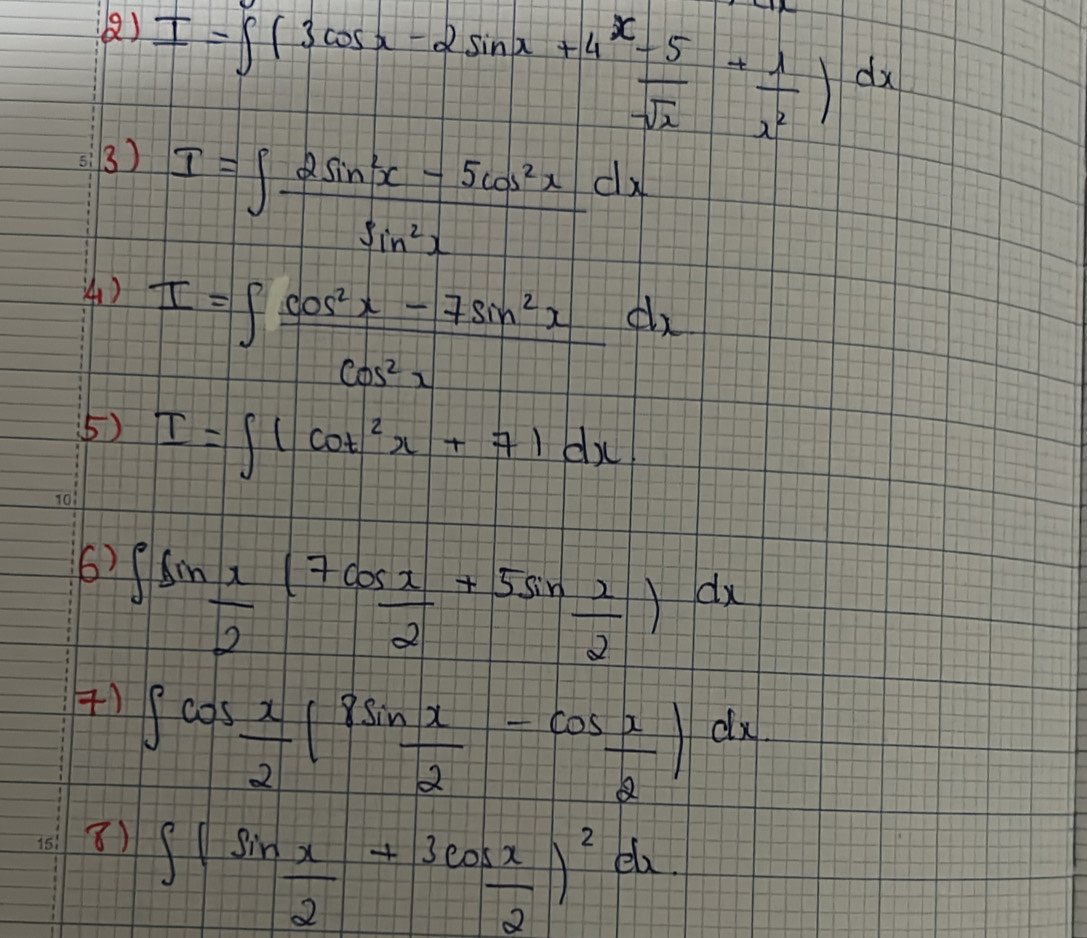 2) I = ∫ ( 3cosx - 2sinx + 4^x - 5/√x + 1/x² ) dx
5 3) I = ∫ (2sin²x - 5cos²x)/(sin²x) dx
4) I = ∫ (cos²x - 7sin²x)/(cos²x) dx
5) I = ∫ ( cot²x + 7 ) dx
10
6) ∫ sin x/2 ( 7cos x/2 + 5sin x/2 ) dx
7) ∫ cos x/2 ( 8sin x/2 - cos x/2 ) dx.
15 8) ∫ ( sin x/2 + 3cos x/2 )² dx.